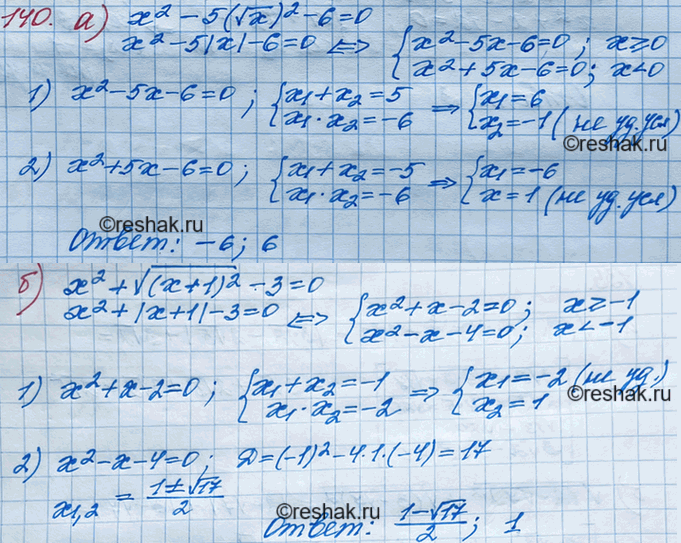 140. а) x² - 5(√x)² - 6 = 0
x² - 5|x| - 6 = 0 ⇔ { x² - 5x - 6 = 0 ; x ≥ 0
x² + 5x - 6 = 0 ; x < 0
1) x² - 5x - 6 = 0 ; { x₁ + x₂ = 5 ⇒ { x₁ = 6
x₁ · x₂ = -6 x₂ = -1 (не уд. усл)
©reshak.ru
2) x² + 5x - 6 = 0 ; { x₁ + x₂ = -5 ⇒ { x₁ = -6
x₁ · x₂ = -6 x = 1 (не уд. усл)
©reshak.ru
Ответ: -6; 6
б) x² + √(x+1)² - 3 = 0
x² + |x+1| - 3 = 0 ⇔ { x² + x - 2 = 0 ; x ≥ -1
x² - x - 4 = 0 ; x < -1
1) x² + x - 2 = 0 ; { x₁ + x₂ = -1 ⇒ { x₁ = -2 (не уд.)
x₁ · x₂ = -2 x₂ = 1
©reshak.ru
2) x² - x - 4 = 0 ; D = (-1)² - 4·1·(-4) = 17
x₁,₂ = (1 ± √17)/2
©reshak.ru
Ответ: (1 - √17)/2 ; 1